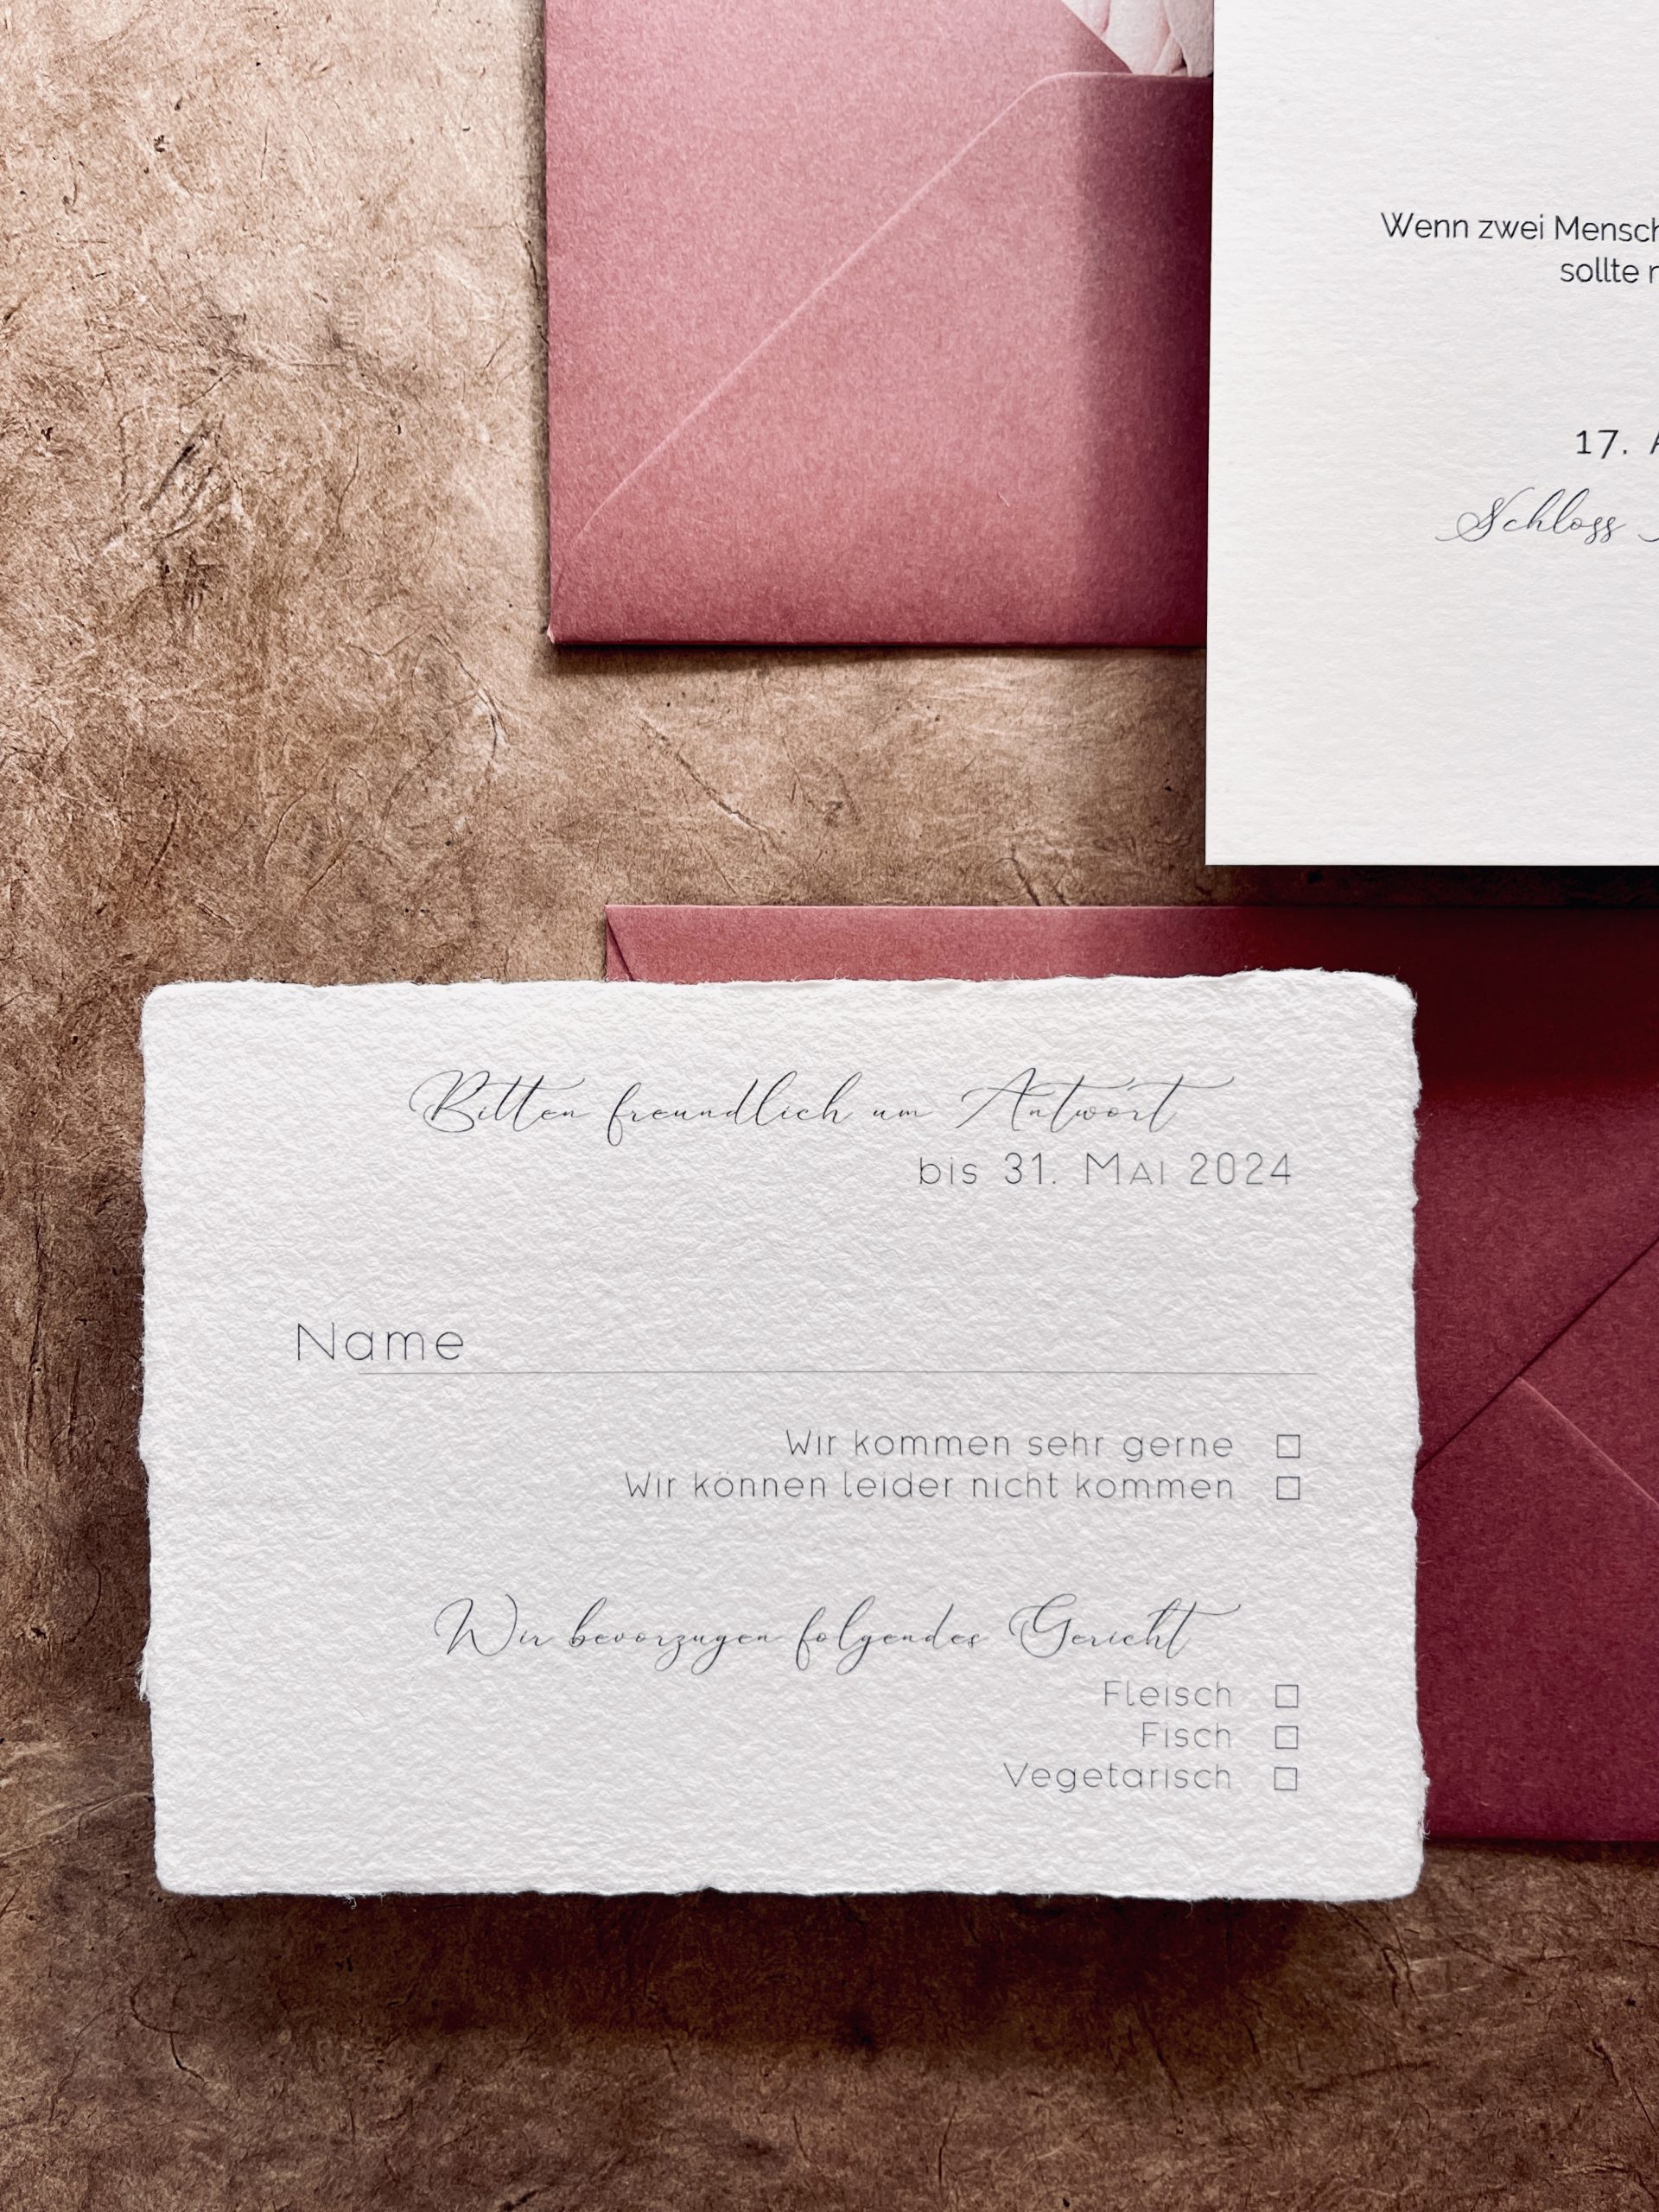 Wenn zwei
sollte
17.
Schloss
Bitten freundlich um Antwort
bis 31. Mai 2024
Name
Wir kommen sehr gerne ☐
Wir können leider nicht kommen ☐
Wir bevorzugen folgendes Gericht
Fleisch ☐
Fisch ☐
Vegetarisch ☐